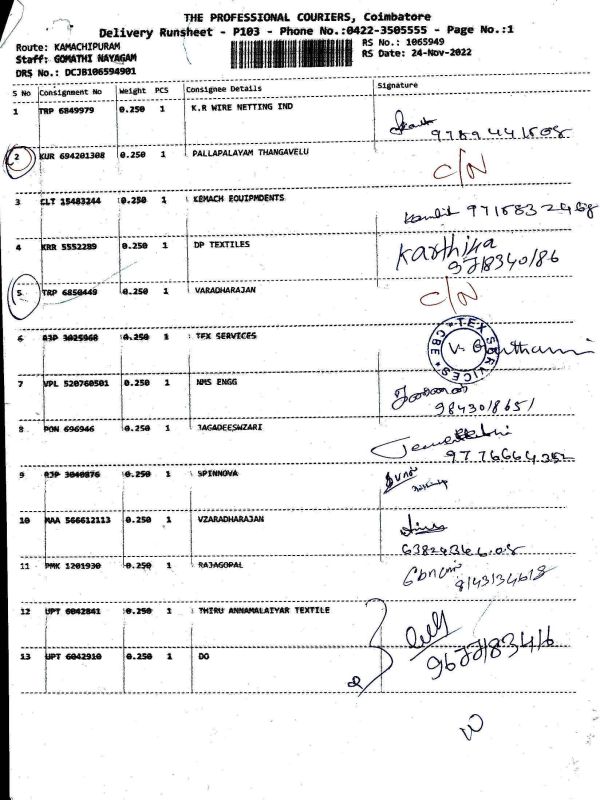 THE PROFESSIONAL COURIERS, Coimbatore
Delivery Runsheet - P103 - Phone No.:0422-3505555 - Page No.:1
Route: KAMACHIPURAM
RS No.: 1065949
Staff: GOMATHI NAYAGAM
RS Date: 24-Nov-2022
DRS No.: DCJB106594901
S No Consignment No Weight PCS Consignee Details Signature
1 TRP 6849979 0.250 1 K.R WIRE NETTING IND
9789441508
2 KUR 694201308 0.250 1 PALLAPALAYAM THANGAVELU C/N
3 CLT 15483244 0.250 1 KEMACH EQUIPMDENTS
4 KRR 5552289 0.250 1 DP TEXTILES Karthika
9718340186
5 TRP 6850449 0.250 1 VARADHARAJAN C/N
6 RJP 3025960 0.250 1 TEX SERVICES
TEX SERVICES CBE
7 VPL 520760501 0.250 1 NMS ENGG
9843018651
8 PON 696946 0.250 1 JAGADEESWZARI
9 RJP 3040876 0.250 1 SPINNOVA
10 MAA 566612113 0.250 1 VZARADHARAJAN
11 PMK 1201930 0.250 1 RAJAGOPAL
12 UPT 6042841 0.250 1 THIRU ANNAMALAIYAR TEXTILE
13 UPT 6042910 0.250 1 DO